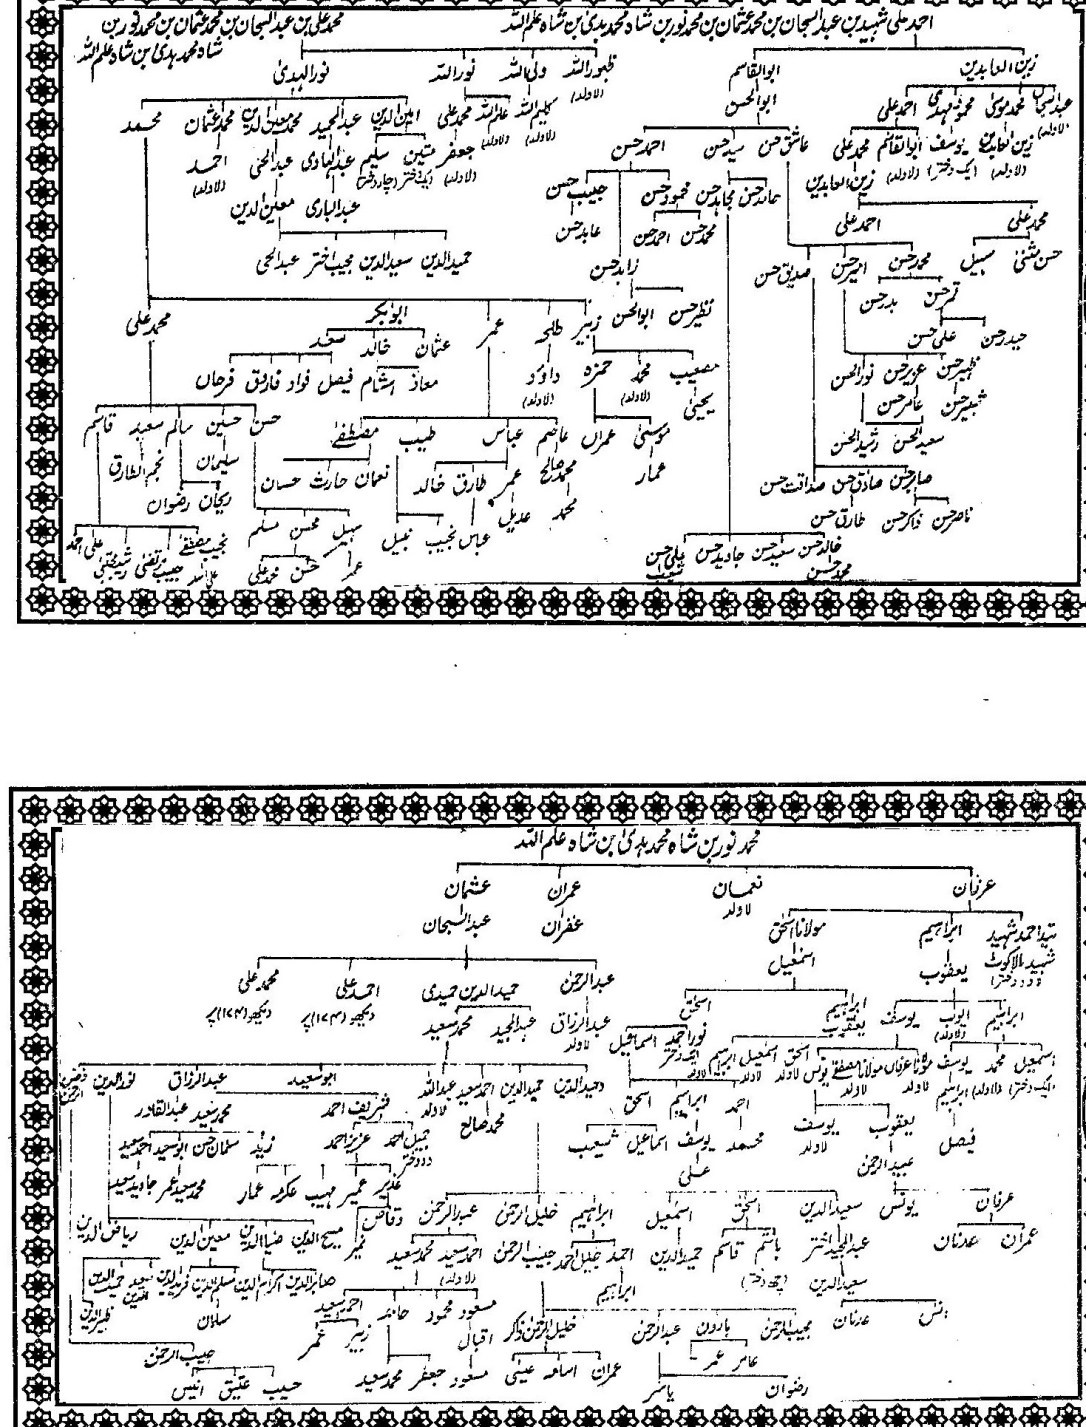 احمد علی شہید بن عبدالسبحان بن محمد عثمان بن محمد نور بن شاہ محمد ہدیٰ بن شاہ علم اللہ
محمد علی بن عبدالسبحان بن محمد عثمان بن محمد نور بن
شاہ محمد ہدیٰ بن شاہ علم اللہ
زین العابدین ابوالقاسم ظہور اللہ (لاولد) ولی اللہ نور اللہ نور الہدیٰ
ابوالحسن
عبدالسبحان (لاولد) محمد موسیٰ محمد مہدی احمد علی کلیم اللہ (لاولد) علم اللہ (لاولد) محمد علی امین الدین عبدالحمید محمد معین الدین محمد عثمان محمد
زین العابدین (لاولد) یوسف (ایک دختر) ابوالقاسم (لاولد) محمد علی عاشق حسن سید حسن احمد حسن جعفر (لاولد) متین (ایک دختر) سلیم (چار دختر) عبدالہادی عبدالحی احمد (لاولد)
زین العابدین عابد حسن مجاہد حسن محمود حسن حبیب حسن عبدالباری معین الدین
محمد علی احمد علی محمد حسن احمد حسن عابد حسن
حسن مثنیٰ سہیل محمد حسن امیر حسن صدیق حسن زاہد حسن حمید الدین سعید الدین مجیب اختر عبدالحی
قمر حسن بدر حسن نظیر حسن ابوالحسن
حیدر حسن علی حسن زبیر طلحہ عمر ابوبکر محمد علی
ظہیر حسن عزیر حسن نور الحسن مصعیب محمد (لاولد) حمزہ داؤد (لاولد) عثمان خالد سعد
شبیر حسن عامر حسن یحییٰ معاذ ہشام فیصل فواد فاروق فرحان
سعید الحسن رشید الحسن موسیٰ عمران عاصم عباس طیب مصطفےٰ حسن حسین سالم سعید قاسم
صابر حسن صادق حسن صداقت حسن عمار محمد صالح عمر طارق خالد نعمان حارث حسان سلیمان نجم الطارق
ناصر حسن ذاکر حسن طارق حسن محمد عدیل عباس نجیب نبیل ریحان رضوان
خالد حسن سعید حسن جاوید حسن علی حسن سہیل محسن مسلم
محمد حسن شعیب عمر حسن محمد علی نجیب مصطفےٰ حبیب مرتضیٰ رشید مجتبیٰ علی احمد
محمد نور بن شاہ محمد ہدیٰ بن شاہ علم اللہ
عرفان نعمان لاولد عمران عثمان
سید احمد شہید ابراہیم مولانا اسحٰق غفران عبدالسبحان
شہید بالاکوٹ (دو دختر) یعقوب اسمٰعیل
عبدالرحمٰن حمید الدین حمیدی احمد علی محمد علی
دیکھو (۱۷۴) پر دیکھو (۱۷۴) پر
ابراہیم ایوب (لاولد) یوسف ابراہیم یعقوب اسحٰق عبدالرزاق لاولد عبدالمجید محمد سعید
نور احمد اسماعیل
اسمٰعیل (ایک دختر) محمد (لاولد) یوسف مولانا عرفان لاولد مولانا مصطفےٰ لاولد یونس اسحٰق لاولد اسمٰعیل لاولد ابراہیم لاولد
وحید الدین حمید الدین احمد سعید عبداللہ لاولد ابوسعید عبدالرزاق نور الدین فیض الرحمٰن
ابراہیم احمد ابراہیم اسحٰق محمد صالح شریف احمد محمد سعید عبدالقادر
فیصل یعقوب یوسف لاولد محمد یوسف اسماعیل شعیب جمیل احمد دو دختر عزیز احمد زید سلمان حسن ابوسعید احمد سعید
عبیدالرحمٰن علی غدیر عمیر مہیب عکرمہ عمار محمد سعید عمر جاوید سعید
عرفان یونس سعید الدین اسحٰق اسمٰعیل ابراہیم خلیل الرحمٰن عبدالرحمٰن وقاص
عمران عدنان عبدالمجید اختر باسم قاسم حمید الدین احمد خلیل احمد حبیب الرحمٰن احمد سعید (لاولد) محمد سعید نمیر مسیح الدین ضیاء الدین معین الدین ریاض الدین
سعید الدین ابراہیم صابر الدین اکرام الدین مسلم الدین فرید الدین سعید الدین حمید الدین
انس عدنان مسعود محمود حامد احمد سعید سلمان ظہیر الدین
مجیب الرحمٰن ہارون عبدالرحمٰن خلیل الرحمٰن ذکر اقبال زبیر عمر حبیب الرحمٰن
عامر عمر عمران اسامہ عیسیٰ مسعود جعفر محمد سعید حسیب عتیق انیس
رضوان یاسر